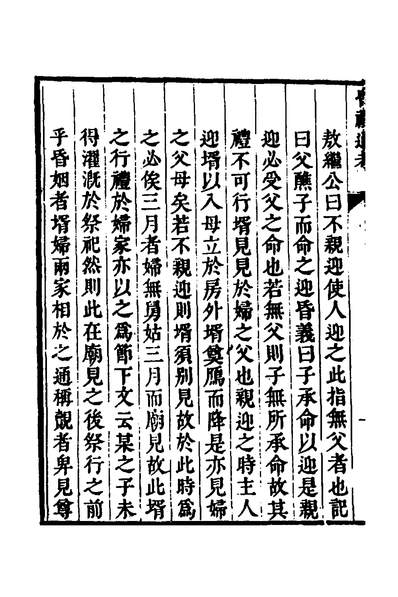 昏禮通考
敖繼公曰不親迎使人迎之此指無父者也記
曰父醮子而命之迎昏義曰子承命以迎是親
迎必受父之命也若無父則子無所承命故其
禮不可行壻見見於婦之父也親迎之時主人
迎壻以入母立於房外壻奠鴈而降是亦見婦
之父母矣若不親迎則壻須别見故於此時爲
之必俟三月者婦無舅姑三月而廟見故此壻
之行禮於婦家亦以之爲節下文云某之子未
得濯漑於祭祀然則此在廟見之後祭行之前
乎昏姻者壻婦兩家相於之通稱覿者卑見尊